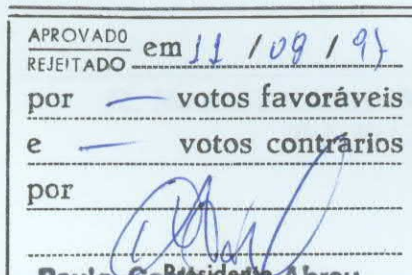 APROVADO
REJEITADO em 11 / 09 / 97
por — votos favoráveis
e — votos contrários
por
Presidente